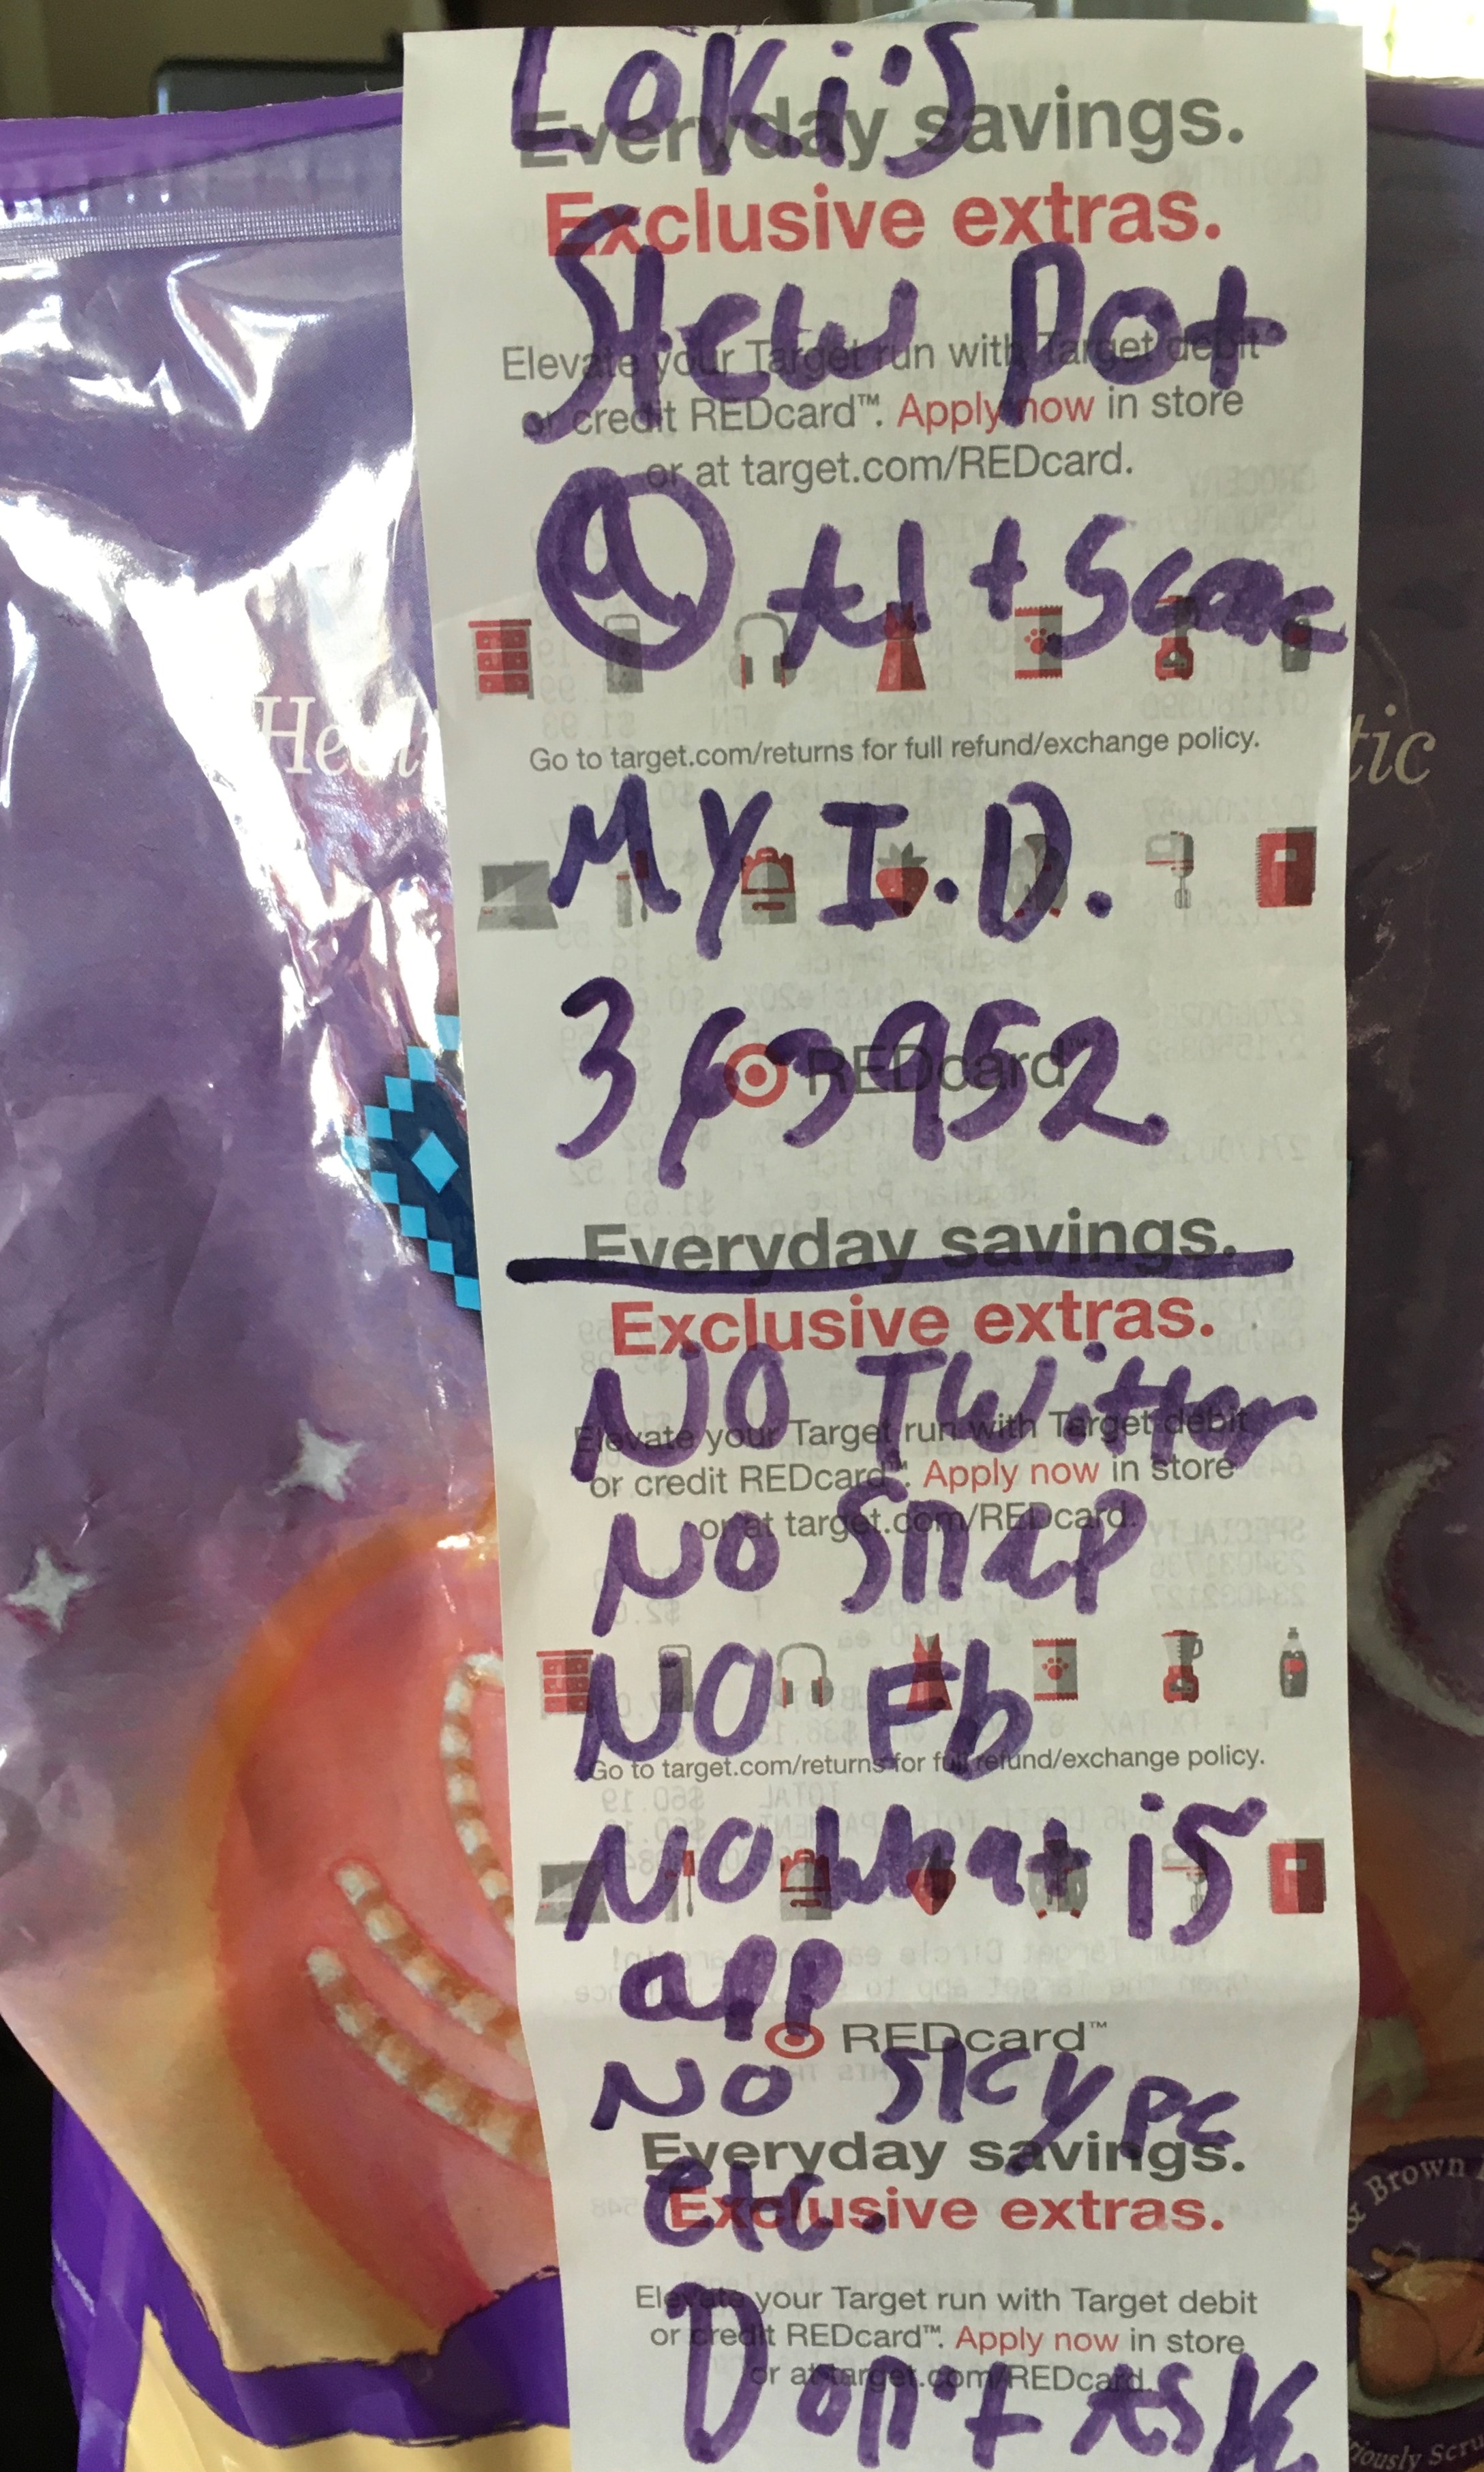 Loki's
Everyday savings.
Exclusive extras.
Stew pot
Elevate your Target run with Target debit
or credit REDcard™. Apply now in store
or at target.com/REDcard.
@ A1 +
Go to target.com/returns for full refund/exchange policy.
Healt
tic
MY I.D.
363952
REDcard™
Everyday savings.
Exclusive extras.
NO TWitter
Elevate your Target run with Target debit
or credit REDcard™. Apply now in store
or at target.com/REDcard.
NO Snap
NO Fb
Go to target.com/returns for full refund/exchange policy.
NO what is
app
REDcard™
NO skype
Everyday savings.
etc.
Exclusive extras.
& Brown
Elevate your Target run with Target debit
or credit REDcard™. Apply now in store
or at target.com/REDcard.
Don't Ask
iously Scru